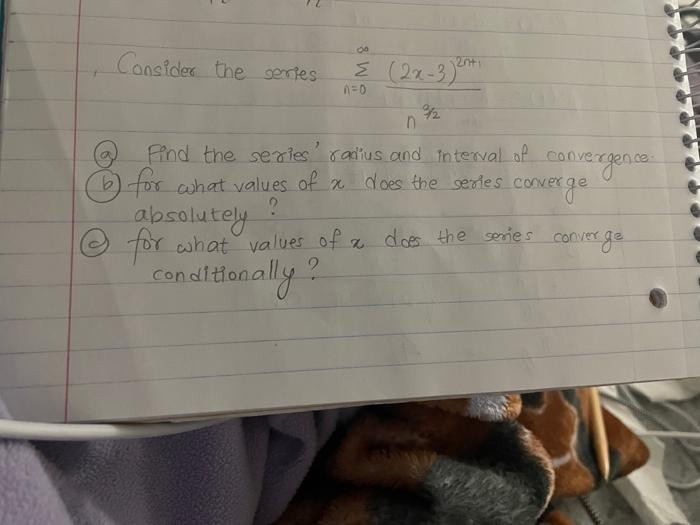 Consider the series ∞ Σ n=0 (2x-3)^2n+1 / n^3/2
(a) Find the series' radius and interval of convergence.
(b) for what values of x does the series converge
absolutely ?
(c) for what values of x does the series converge
conditionally ?